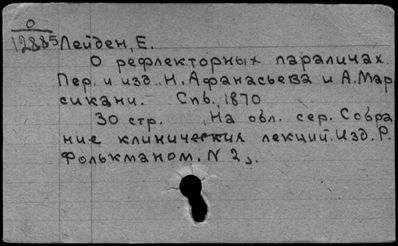 0
12885 Лейден, Е.
О рефлекторных параличах.
Пер. и изд. Н. Афанасьева и А. Мар
сикани. Спб., 1870
30 стр. На обл. сер. Собра
ние клинических лекций. Изд. Р.
Фолькманом. N 2.